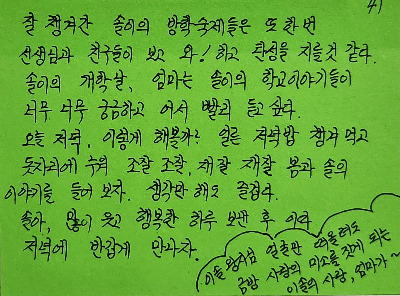 41
잘 챙겨간 솔이의 방학숙제들은 또 한번
선생님과 친구들이 보고 와! 하고 탄성을 지를것 같다.
솔이의 개학날, 엄마는 솔이의 학교이야기들이
너무 너무 궁금하고 어서 빨리 듣고 싶다.
오늘 저녁, 이렇게 해볼까? 얼른 저녁밥 챙겨 먹고
돗자리에 누워 조잘 조잘, 재잘 재잘 봄과 솔의
이야기를 들어 보자. 생각만 해도 즐겁다.
솔아, 많이 웃고 행복한 하루 보낸 후 이따
저녁에 반갑게 만나자.
이솔 왕자님 얼굴만 떠올려도
금방 사랑의 미소를 짓게 되는
이솔의 사랑, 엄마가~